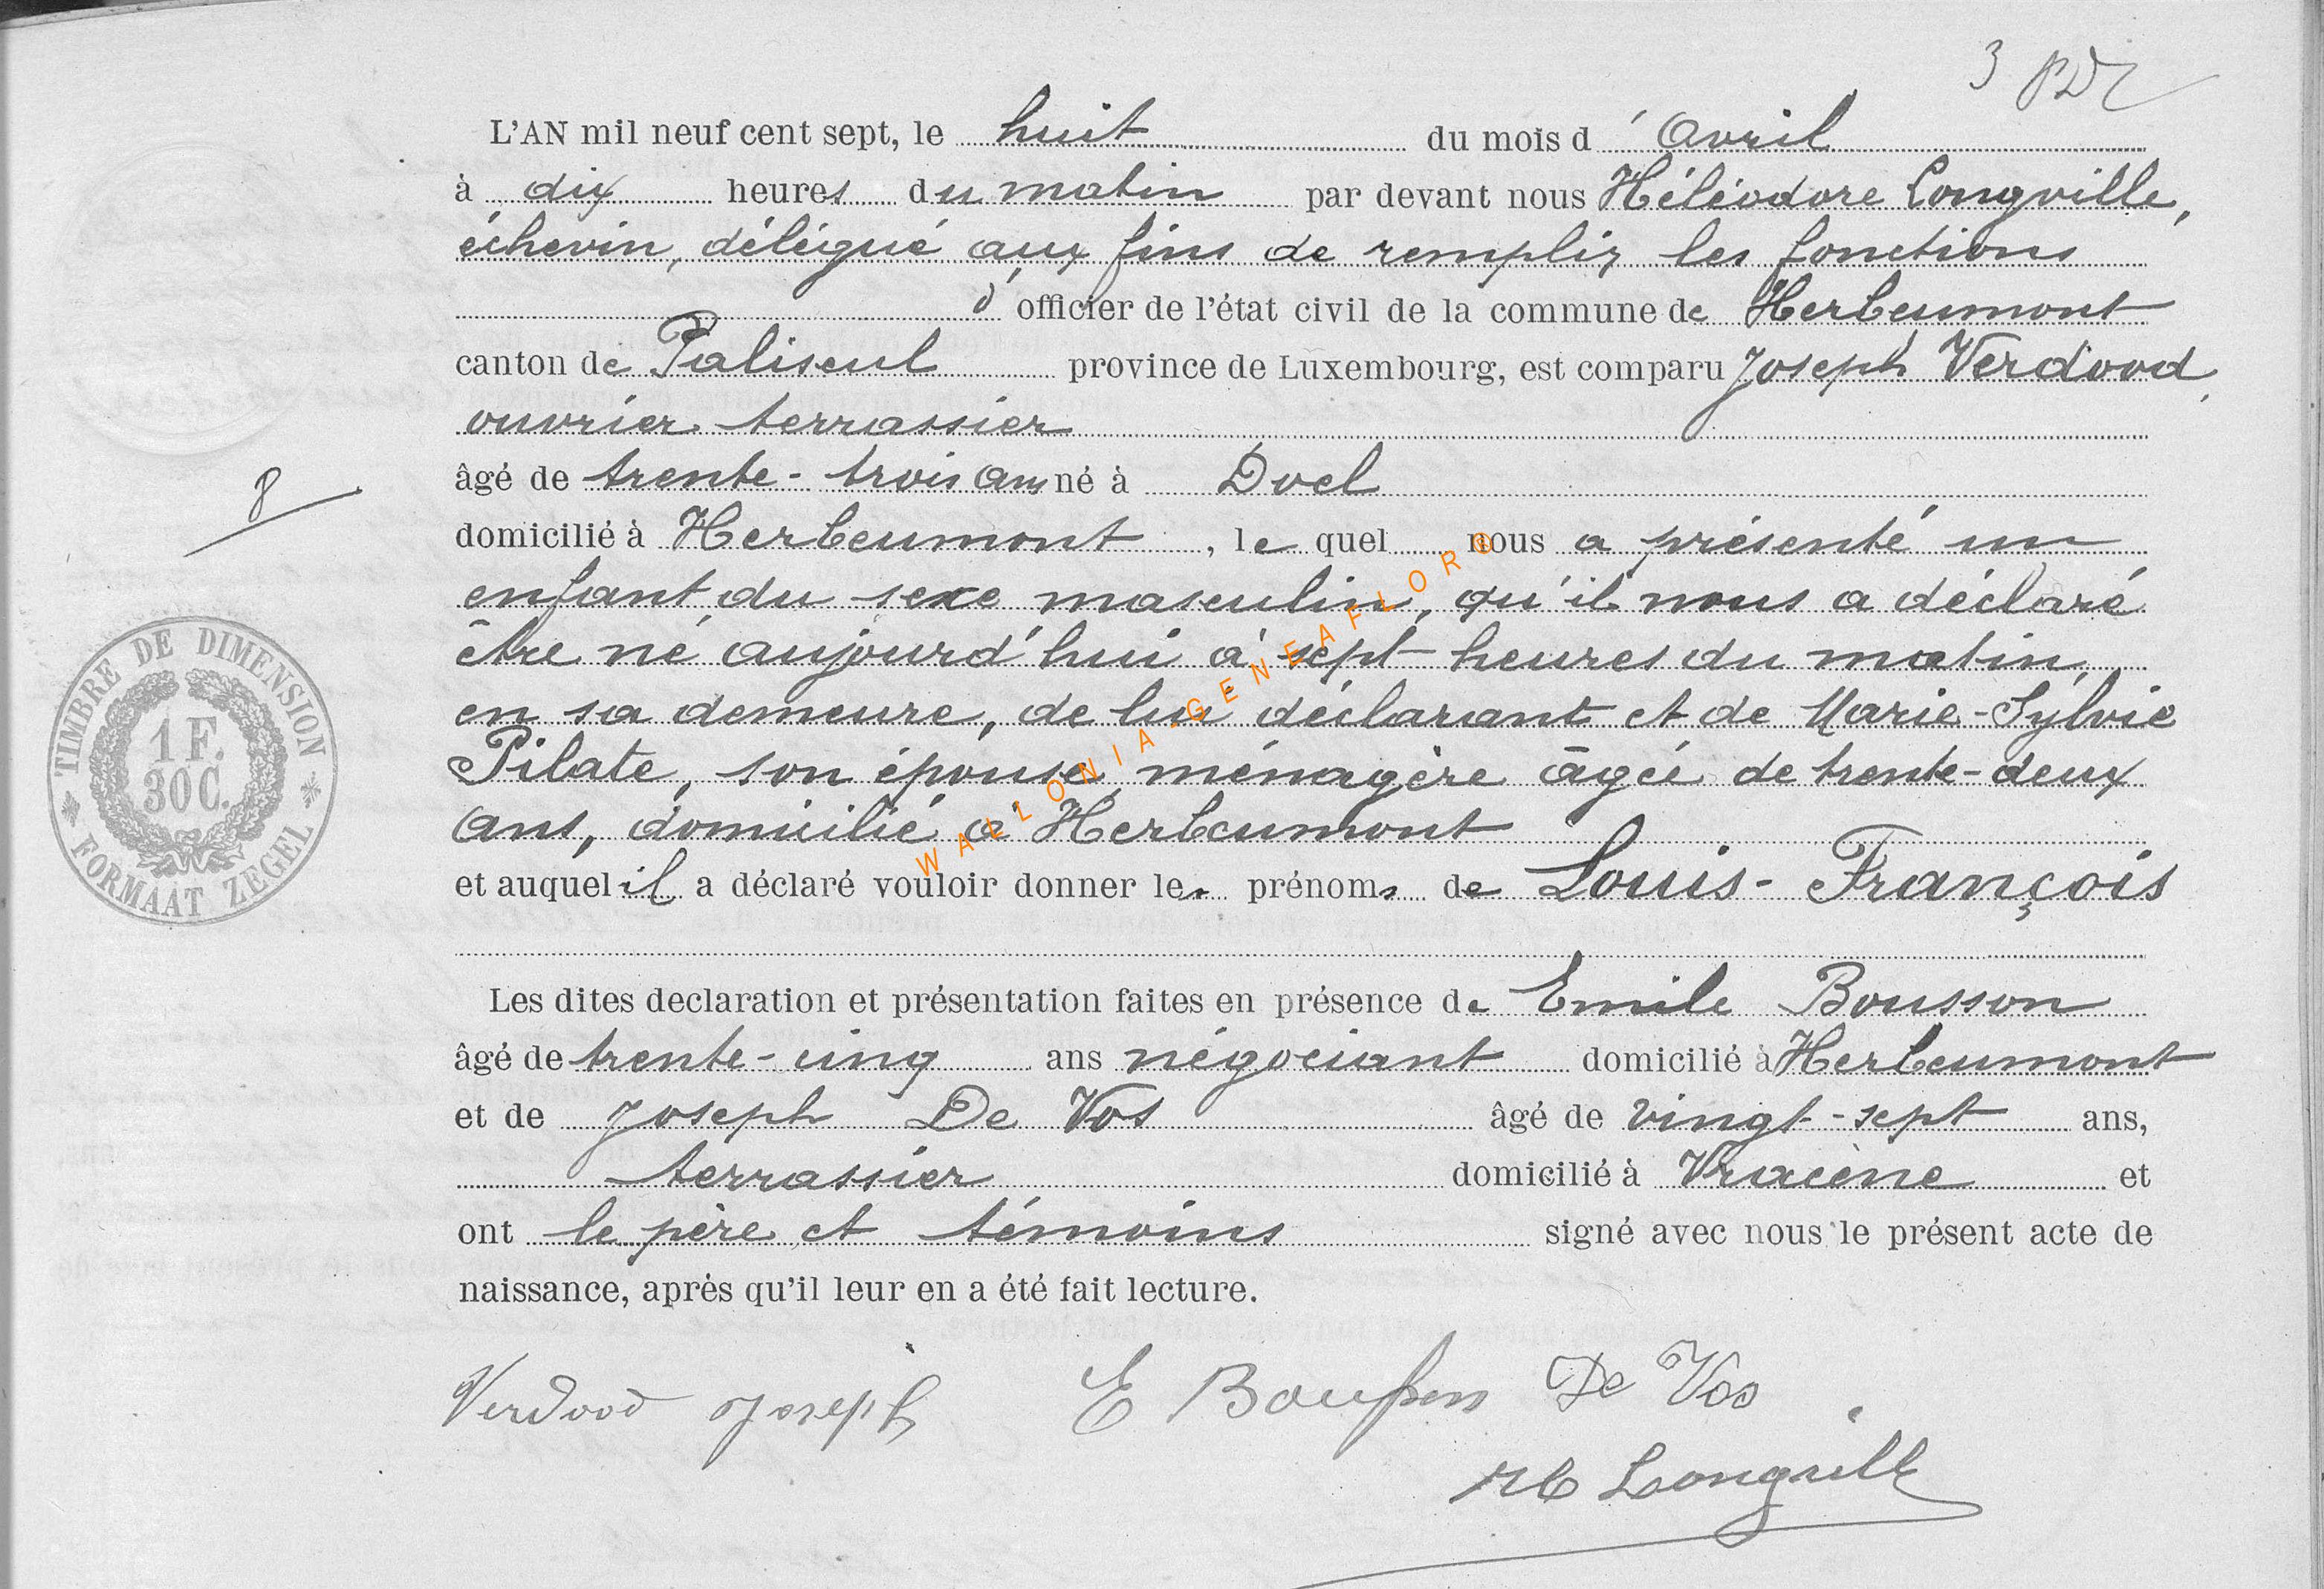 3
L'AN mil neuf cent sept, le huit du mois d'Avril
à dix heures du matin par devant nous Héléodore Longville,
échevin, délégué aux fins de remplir les fonctions
d'officier de l'état civil de la commune de Herbeumont
canton de Paliseul province de Luxembourg, est comparu Joseph Verdood,
ouvrier terrassier
âgé de trente-trois ans né à Doel
domicilié à Herbeumont, le quel nous a présenté un
8
enfant du sexe masculin, qu'il nous a déclaré
être né aujourd'hui à sept heures du matin,
en sa demeure, de lui déclarant et de Marie-Sylvie
Pilate, son épouse, ménagère âgée de trente-deux
ans, domicilié à Herbeumont
et auquel il a déclaré vouloir donner les prénoms de Louis-François
TIMBRE DE DIMENSION
1 F.
30 C.
FORMAAT ZEGEL
WALLONIA-GENEAFLOR®
Les dites declaration et présentation faites en présence de Emile Bousson
âgé de trente-cinq ans négociant domicilié à Herbeumont
et de Joseph De Vos âgé de vingt-sept ans,
terrassier domicilié à Vracène et
ont le père et témoins signé avec nous le présent acte de
naissance, après qu'il leur en a été fait lecture.
Verdood Joseph E Bousson De Vos
H Longville